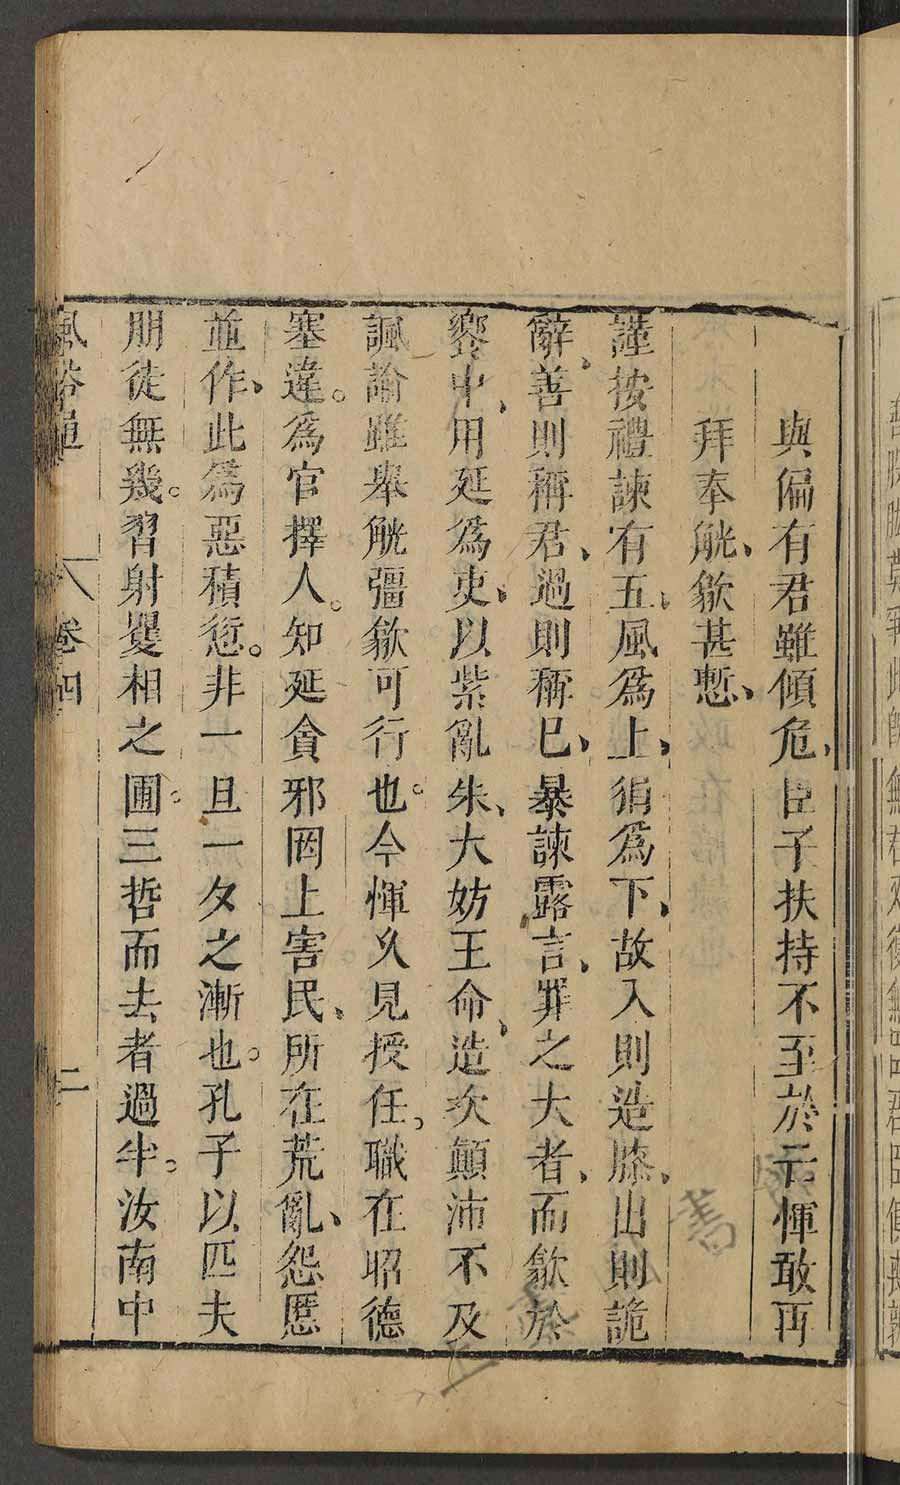 與偏有君雖傾危、臣子扶持不至於亡惲敢再
拜奉觥、歙甚慙、
謹按禮諫有五、風爲上、狷爲下、故入則造膝、出則詭
辭、善則稱君、過則稱已、暴諫露言、罪之大者、而歙於
饗中、用延爲吏、以紫亂朱、大妨王命、造次顚沛不及
諷諭雖舉觥彊歙可行也。今惲久見授任。職在昭德
塞違。爲官擇人。知延貪邪罔上害民、所在荒亂、怨慝
並作、此爲惡積愆。非一旦一夕之漸也。孔子以匹夫
朋徒無幾。習射矍相之圃。三哲而去者過半。汝南中
風俗通 卷四 二